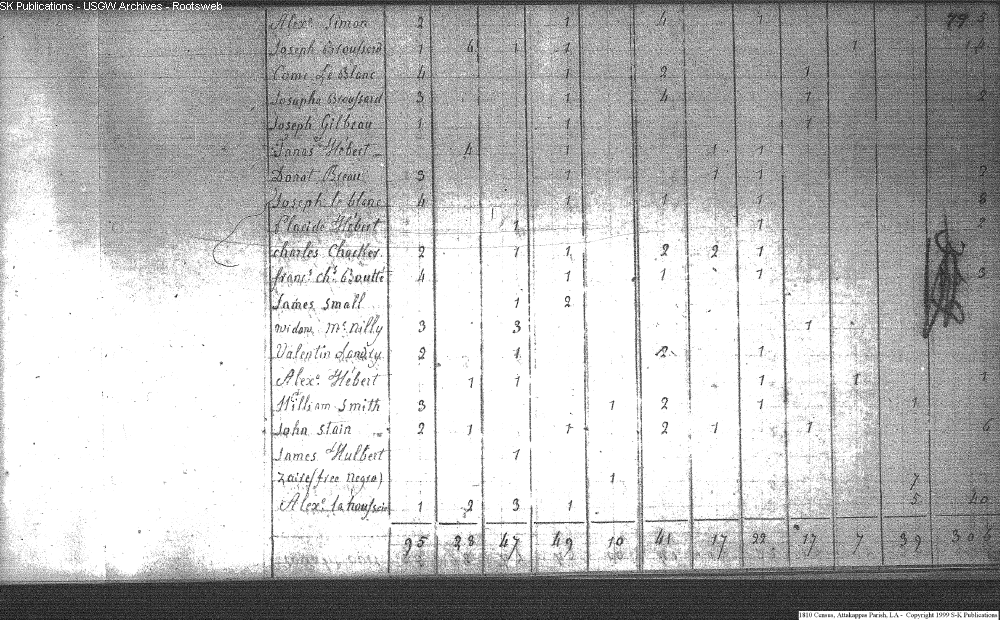 SK Publications - USGW Archives - Rootsweb
79
Alexo. Simon 2 1 4 1 3
Joseph Broussard 1 4 1 1 1 14
Come Le Blanc 4 1 2 1
Josaphe Broussard 3 1 4 1 2
Joseph Gilbeau 1 1 1
Hebert 4 1 1 1
Donat Breau 3 1 1 1
Joseph le blanc 4 1 1 1 8
Placide Hébert 1 1 2
charles 2 1 1 2 2 1
franc.s ch.s Boutté 4 1 1 1 3
James Small 1 2
widow Mc.nilly 3 3 1
Valentin Landry 2 1 2 1
Alexo. Hébert 1 1 1 1 1
William Smith 3 1 2 1 1
John Stain 2 1 1 2 1 1 6
James Hulbert 1
Zaire (free Negro) 1 7
Alexo. 1 2 3 1 5 40
95 28 47 49 10 41 17 22 17 7 39 306
1810 Census, Attakappas Parish, LA - Copyright 1999 S-K Publications